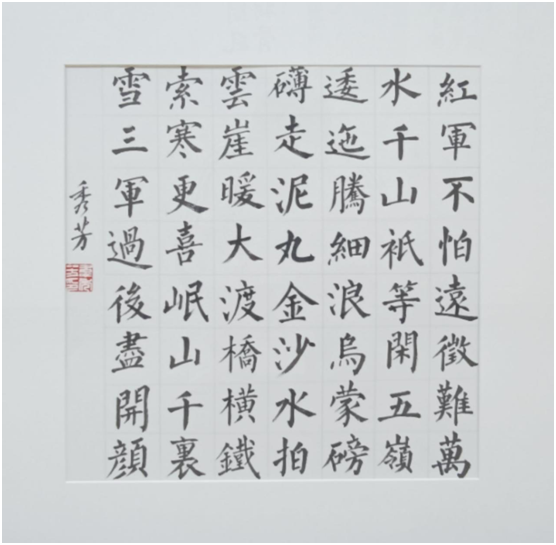 紅軍不怕遠徵難萬
水千山祇等閑五嶺
逶迤騰細浪烏蒙磅
礴走泥丸金沙水拍
雲崖暖大渡橋橫鐵
索寒更喜岷山千裏
雪三軍過後盡開顔
秀芳